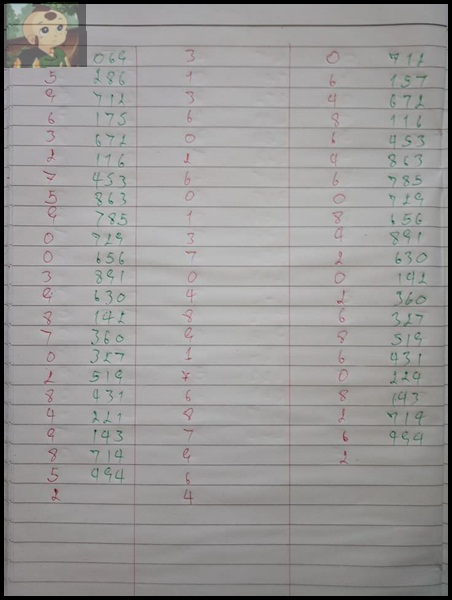 069 3 0 712
5 286 1 6 157
9 712 3 4 672
6 175 6 8 116
3 672 0 6 453
2 116 2 9 863
7 453 6 6 785
5 863 0 0 729
9 785 1 8 656
0 729 3 9 891
0 656 7 2 630
3 891 0 0 142
9 630 4 2 360
8 142 8 6 327
7 360 9 8 519
0 327 1 6 431
2 519 7 0 229
8 431 6 8 143
4 221 8 2 719
9 143 7 6 994
8 714 9 2
5 994 6
2 4